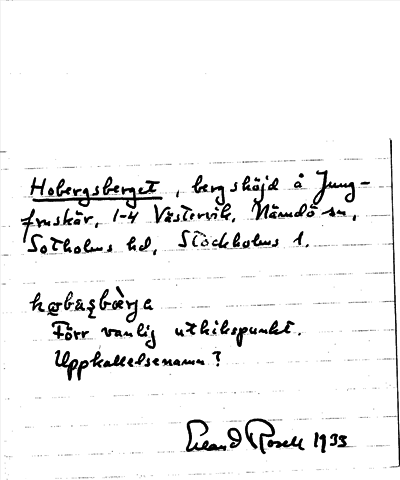 Hobergsberget, bergshöjd å Jung-
fruskär, 1-4 Västervik, Nämdö sn,
Sotholms hd, Stockholms l.
Förr vanlig utkikspunkt.
Uppkallelsenamn?
Erland Rosell 1935